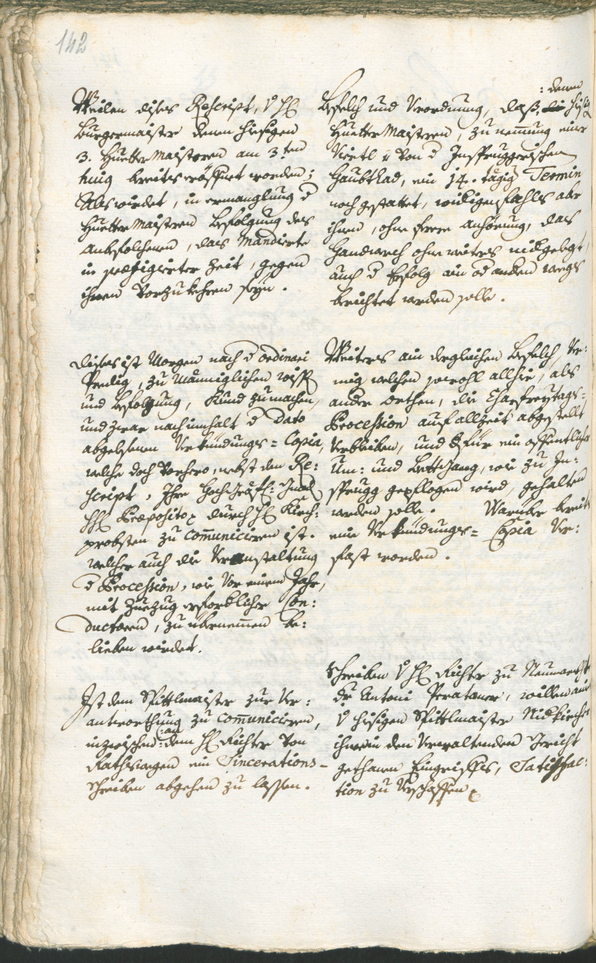 142
Weilen dises Rescript, V H:
Burgermaister denen hiesigen
3. Huetter Maisteren am 3ten
huig bereits eröffnet worden;
Als wirdet, in ermanglung d
Huetter Maistren befolgung des
Anbefolchenen, das Mandirte
in præfigirter Zeit, gegen
ihnen vorzukehren seyn.
: denen
Befelch und Verordnung, daß hiesig
Huetter Maistern, zu nennung eines
Viertl: von d Insprugger:
Haubtlad, ein 14. tägig Termin
noch gestattet, widrigenfahls aber
ihnen, ohne ferere anhörung, das
Handwerch ohne weiters nidergelegt,
auch d Erfolg ain od anderen weegs
berichtet werden solle.
Dises ist Morgen nach d ordinari
Predig, zu männiglichen wiss:
und befolgung, kund zu machen,
und zwar nach inhalt d Dato
abgelesenen Verkündungs= Copia,
welche doch vorhero, nebst dem Re:
script, Ihro Hochfürstl: Gnad
H: Præposito, durch H: Kirch:
probsten zu communiciren ist.
welcher auch die Veranstaltung
d Procession, wie vor einem Jahr,
mit Zuezug erforderlicher Con:
ductoren, zu übernemmen be:
lieben wirdet.
Weiters ain dergleichen Befelch, Ver:
mög welchen sowohl allhie, als
andere orthen, die Charfreytags=
Procession auf allzeit abgestellt
Verbleiben, und dafür ein offentlicher
Um: und Bettgang, wie zu In:
sprugg gepflogen wird, gehalten
werden solle. Warüber bereits
eine Verkündungs= Copia Ver:
fast worden.
Ist dem Spittlmaister zur Ver:
antworthung zu communiciren,
inzwischen :an: dem H: Richter von
Rathswegen ein Sincerations=
schreiben abgehen zu lassen.
Schreiben V H: Richter zu Neumarckt
Dr Antoni Prataner, willen aines
V hiesigen Spittlmaister Nidkircher
ihme in dem Verwaltenden Gericht
gethanen Eingriffes, Satisfac:
tion zu verschaffen.